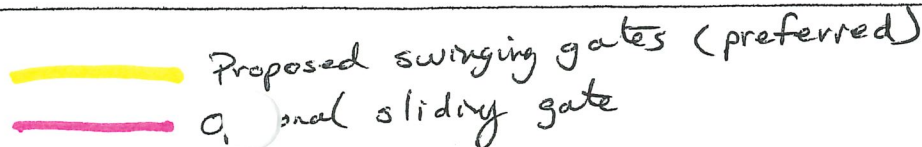 Proposed swinging gates (preferred)
sliding gate